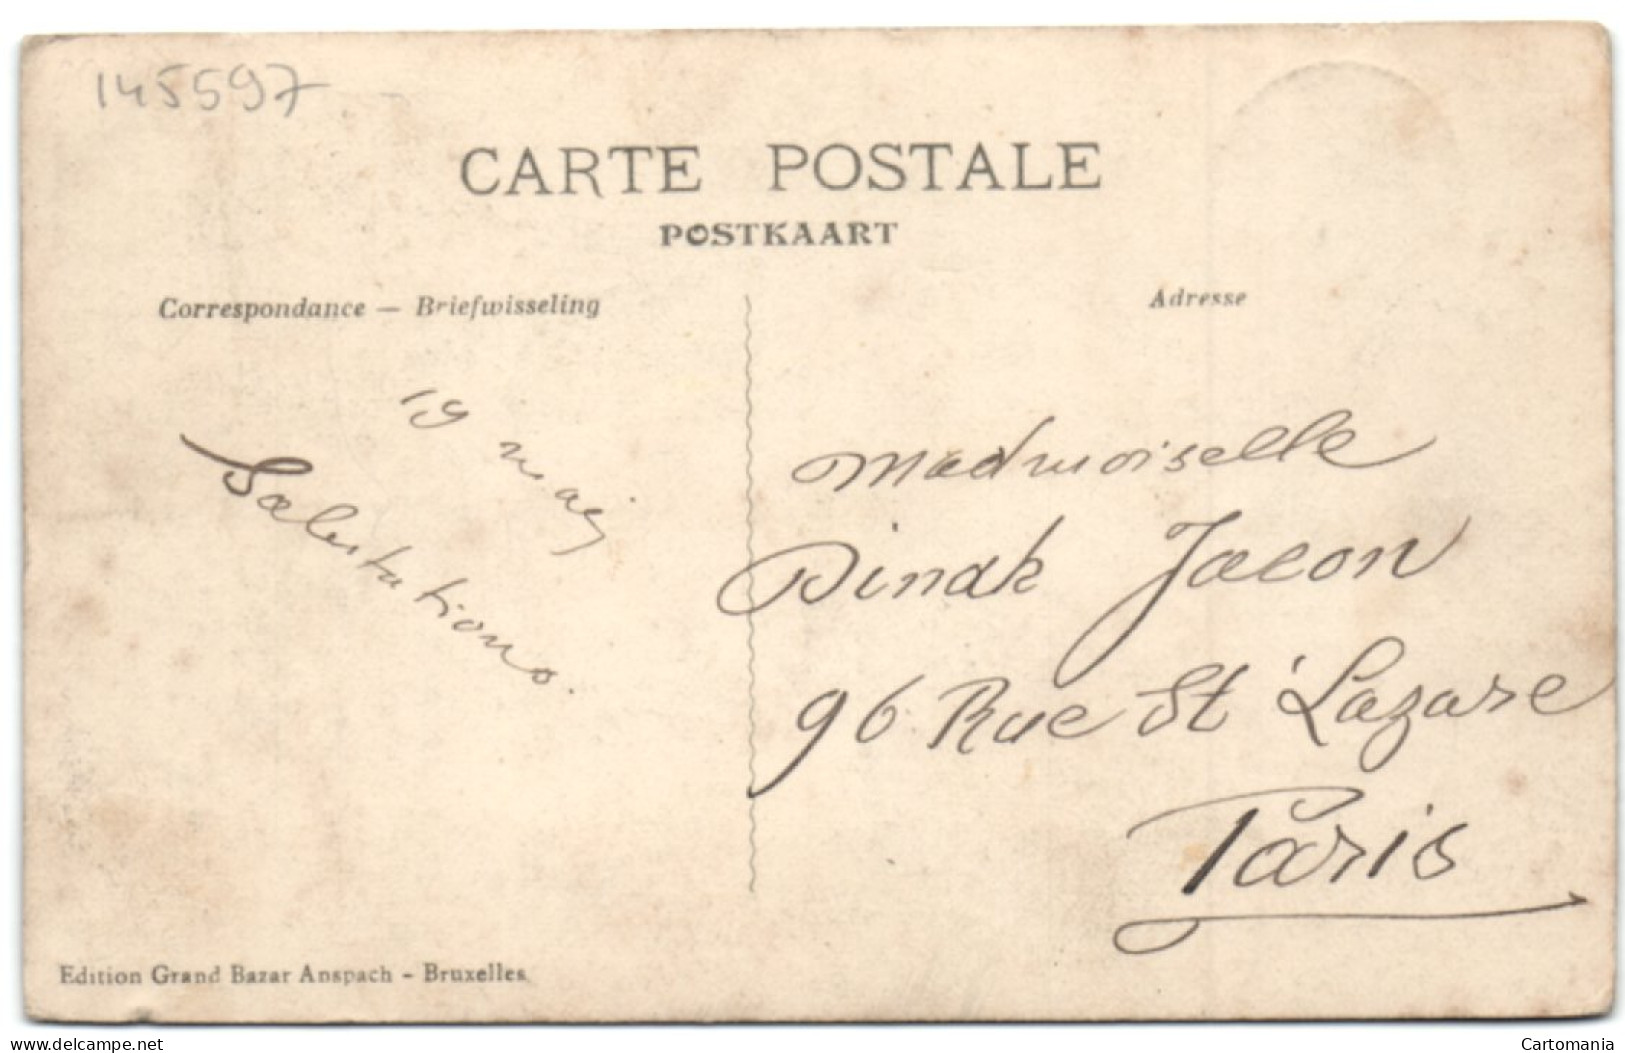 145597
CARTE POSTALE
POSTKAART
Correspondance — Briefwisseling
Adresse
19 maj
Salutations.
Madmoiselle
Dinah Jacon
96 Rue St Lazare
Paris
Edition Grand Bazar Anspach - Bruxelles
www.delcampe.net
Cartomania